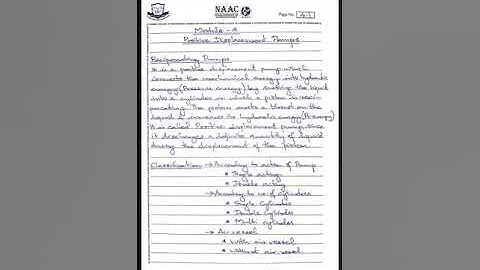 NAAC
Page No. 4.1
Module - 4
Positive Displacement Pumps
Reciprocating Pumps
It is a positive displacement pump which
converts the mechanical energy into hydraulic
energy (Pressure energy) by sucking the liquid
into a cylinder in which a piston is reci-
procating. The piston exerts a thrust on the
liquid & increases its hydraulic energy (P.energy)
It is called Positive displacement pump, since
it discharges a definite quantity of liquid
during the displacement of the piston.
Classification → According to action of Pump
* Single acting
* Double acting
→ According to no. of cylinders
* Single Cylinder
* Double cylinder
* Multi cylinder
→ Air vessel
* With air vessel
* Without air vessel